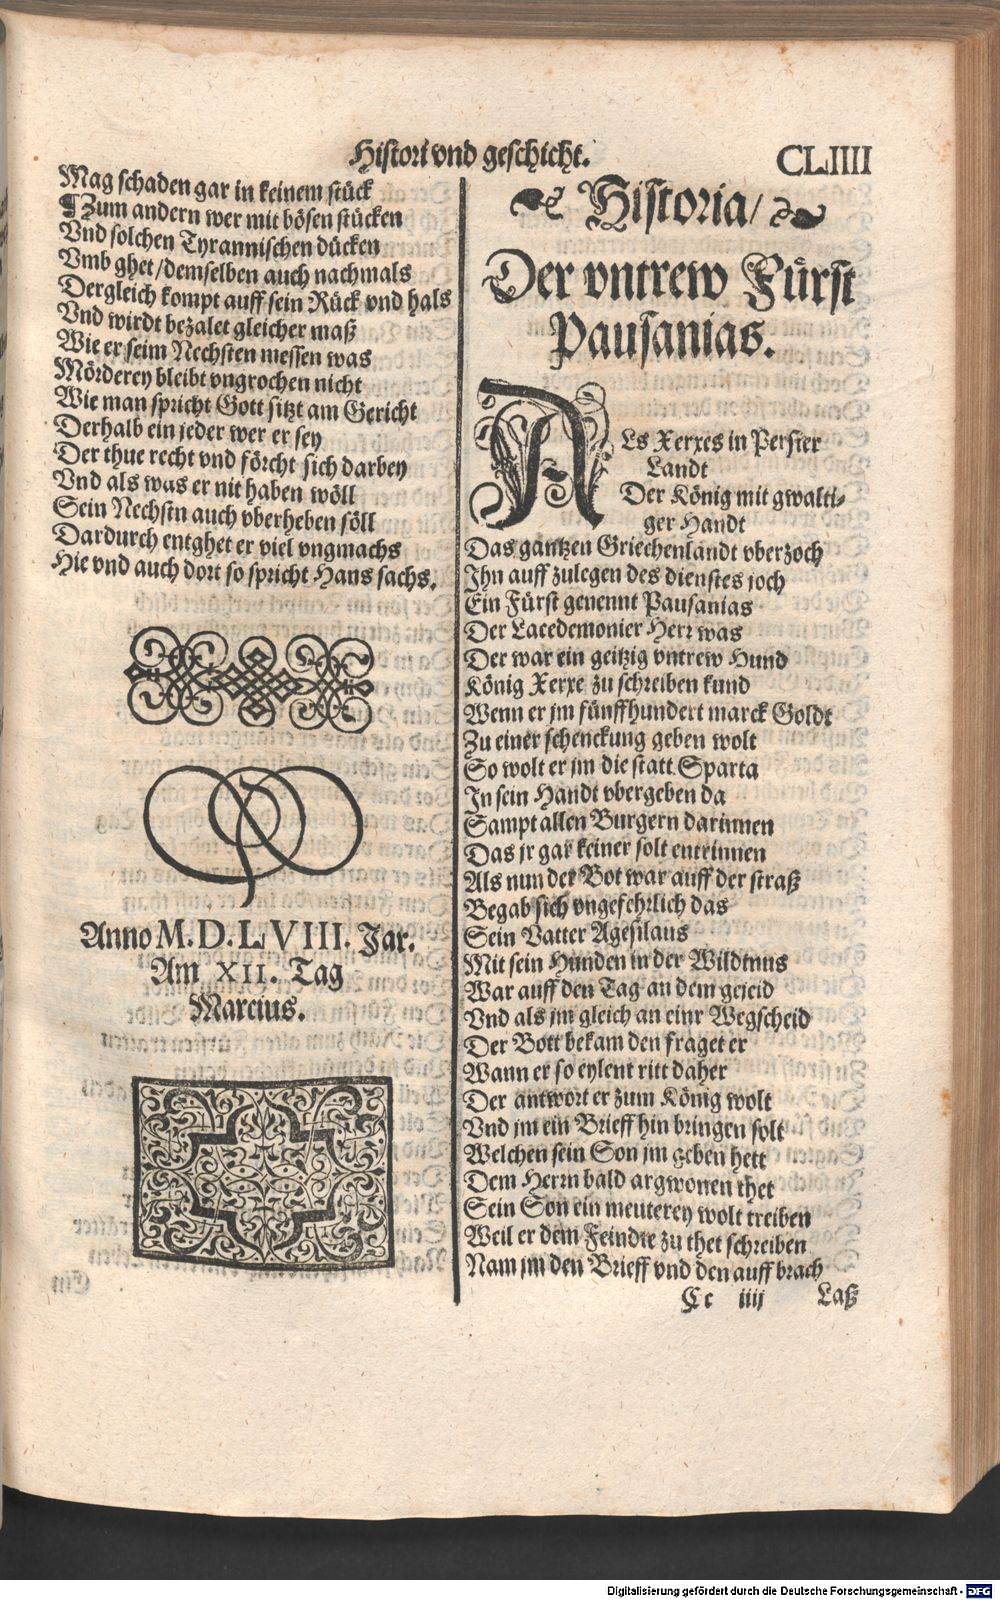 Histori vnd geschicht.
CLIIII
Mag schaden gar in keinem stück
¶Zum andern wer mit bösen stücken
Vnd solchen Tyrannischen dücken
Vmb ghet/demselben auch nachmals
Dergleich kompt auff sein Rück vnd hals
Vnd wirdt bezalet gleicher maß
Wie er seim Nechsten messen was
Mörderey bleibt vngrochen nicht
Wie man spricht Gott sitzt am Gericht
Derhalb ein jeder wer er sey
Der thue recht vnd förcht sich darbey
Vnd als was er nit haben wöll
Sein Nechstn auch vberheben söll
Dardurch entghet er viel vngmachs
Hie vnd auch dort so spricht Hans sachs.
Anno M. D. LVIII. Jar.
Am XII. Tag
Marcius.
Historia/
Der vntrew Fürst
Pausanias.
ALs Xerxes in Persier
Landt
Der König mit gwalti-
ger Handt
Das gantzen Griechenlandt vberzoch
Ihn auff zulegen des dienstes joch
Ein Fürst genennt Pausanias
Der Lacedemonier Herr was
Der war ein geitzig vntrew Hund
König Xerxe zu schreiben kund
Wenn er jm fünffhundert marck Goldt
Zu einer schenckung geben wolt
So wolt er jm die statt Sparta
In sein Handt vbergeben da
Sampt allen Burgern darinnen
Das jr gar keiner solt entrinnen
Als nun der Bot war auff der straß
Begab sich vngefehrlich das
Sein Vatter Agesilaus
Mit sein Hunden in der Wildtnus
War auff den Tag an dem gejeid
Vnd als jm gleich an einr Wegscheid
Der Bott bekam den fraget er
Wann er so eylent ritt daher
Der antwort er zum König wolt
Vnd jm ein Brieff hin bringen solt
Welchen sein Son jm geben hett
Dem Herrn bald argwonen thet
Sein Son ein meuterey wolt treiben
Weil er dem Feindte zu thet schreiben
Nam jm den Brieff vnd den auff brach
Cc iiij Laß
Digitalisierung gefördert durch die Deutsche Forschungsgemeinschaft - DFG